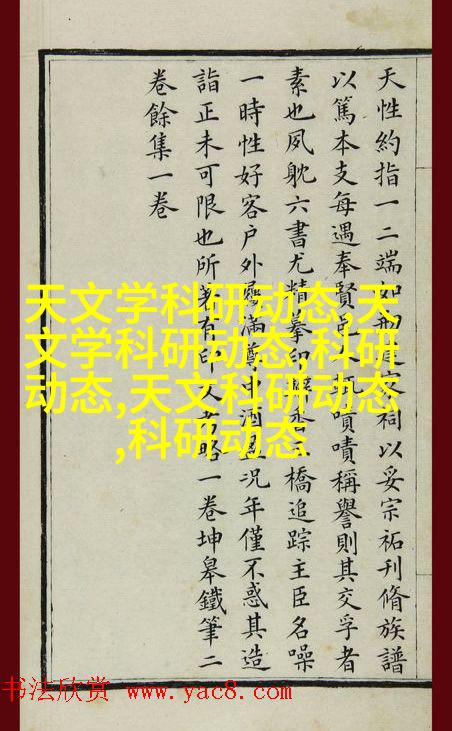 天性約指一二端如建宗祠以妥宗祏刊脩族譜
以篤本支每遇奉賢邑人輒嘖嘖稱譽則其交孚者
素也夙躭六書尤精摹印香三橋追踪主臣名噪
一時性好客户外屨滿尊中酒盈况年僅不惑其造
詣正未可限也所著有印人考略一卷坤皋鐵筆二
卷餘集一卷
天文学科研动态,天
文学科研动态,科研
动态,天文科研动态
,科研动态
书法欣赏 www.yac8.com